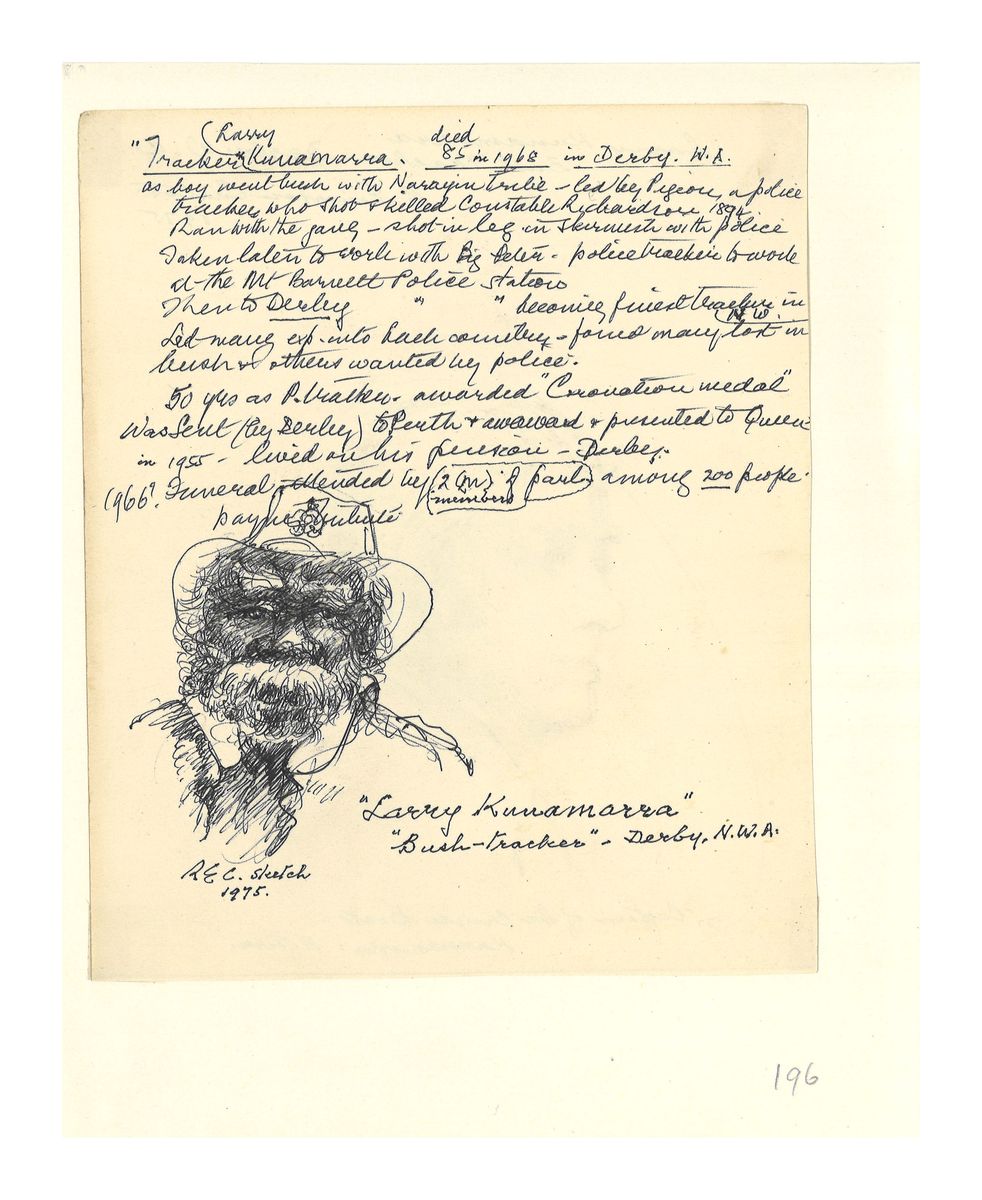 (Larry
"Tracker" Kunamarra. died 85 in 1968 in Derby. W.A.
as boy went bush with Narayin tribe - led by Pigeon, a police
tracker, who shot & killed Constable Richardson, 1894.
Ran with the gang - shot in leg in skirmish with police
Taken later to work with Big Peter - police tracker to work
at the Mt Barnett Police station
Then to Derby " " becoming finest tracker in
N.W.
Led many exp. into back country - found many lost in
bush & others wanted by police.
50 yrs as P. tracker - awarded "Coronation medal"
Was Sent (by Derby) to Perth & award & presented to Queen
in 1955 - lived on his pension - Derby.
1966? Funeral attended by (2 (M) of parl.) among 200 people.
members
paying tribute
"Larry Kunamarra"
"Bush-tracker" - Derby. N.W.A.
R E C. sketch
1975.
196